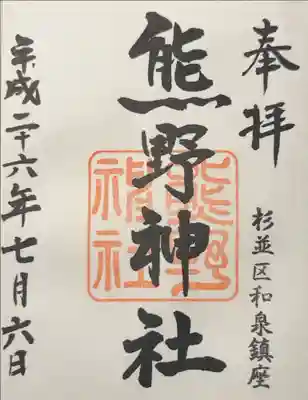 奉拝
杉並区和泉鎮座
熊野神社
熊野
神社
平成二十六年七月六日